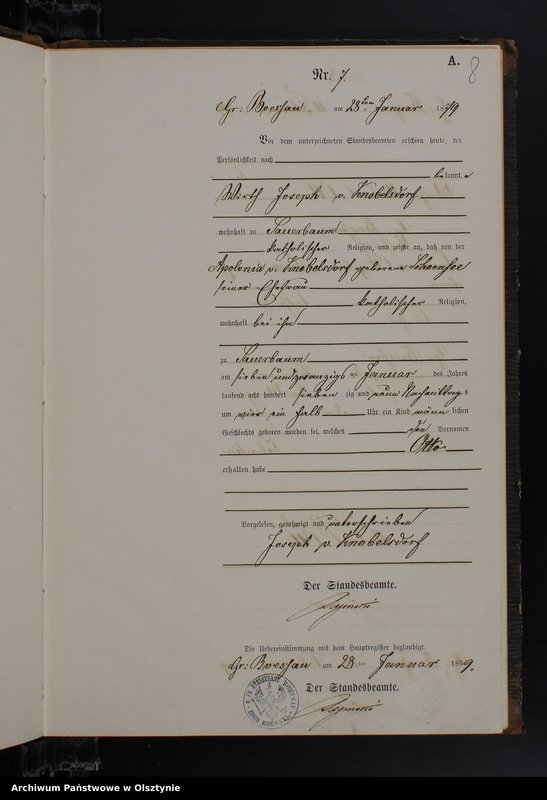 A.
8
Nr. 7.
Gr: Boessau am 28ten Januar 1879
Vor dem unterzeichneten Standesbeamten erschien heute, der
Persönlichkeit nach
bekannt,
Wirth Joseph v. Knobelsdorf
wohnhaft zu Sauerbaum
katholischer Religion, und zeigte an, daß von der
Apolonia v. Knobelsdorf geborene Schoensee
seiner Ehefrau
katholischer Religion,
wohnhaft bei ihm
zu Sauerbaum
am sieben und zwanzigsten Januar des Jahres
tausend acht hundert siebenzig und neun Nachmittags
um vier ein halb Uhr ein Kind männlichen
Geschlechts geboren worden sei, welches den Vornamen
Otto
erhalten habe
Vorgelesen, genehmigt und unterschrieben
Joseph v. Knobelsdorf
Der Standesbeamte.
Die Uebereinstimmung mit dem Hauptregister beglaubigt
Gr: Boessau am 28ten Januar 1879.
Der Standesbeamte.
Archiwum Państwowe w Olsztynie